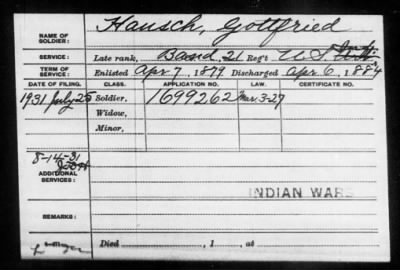 NAME OF SOLDIER: Hausch, Gottfried
SERVICE: Late rank, Band 21 Reg't U.S. Inf.
TERM OF SERVICE: Enlisted Apr 7, 1879 Discharged Apr. 6, 1884
DATE OF FILING. CLASS. APPLICATION NO. LAW. CERTIFICATE NO.
1931 July 25 Soldier, 1699262 Mar. 3-27
Widow,
Minor,
8-14-31
ADDITIONAL SERVICES:
INDIAN WARS
REMARKS:
Died , 1 , at